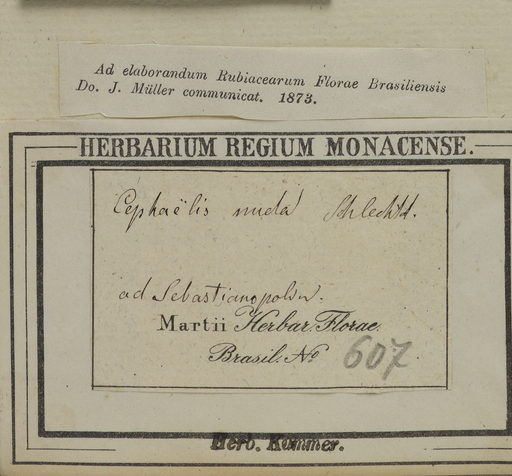 Ad elaborandum Rubiacearum Florae Brasiliensis
Do. J. Müller communicat. 1873.
HERBARIUM REGIUM MONACENSE.
Cephaëlis nuda Schlechtd.
ad Sebastianopolin.
Martii Herbar. Florae
Brasil. No 607
Herb. Kummer.